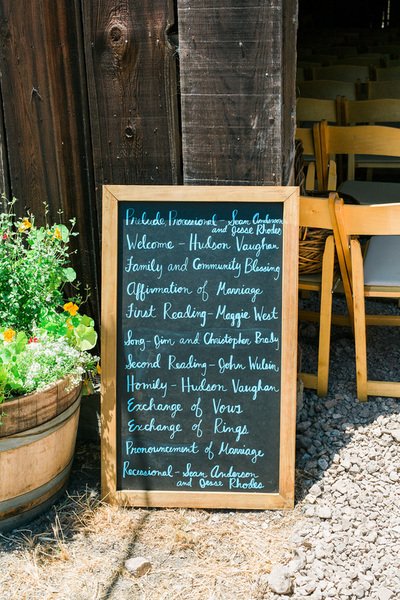 Prelude, Processional - Sean Anderson
and Jesse Rhodes
Welcome - Hudson Vaughan
Family and Community Blessing
Affirmation of Marriage
First Reading - Maggie West
Song - Jim and Christopher Brady
Second Reading - John Wilson
Homily - Hudson Vaughan
Exchange of Vows
Exchange of Rings
Pronouncement of Marriage
Recessional - Sean Anderson
and Jesse Rhodes